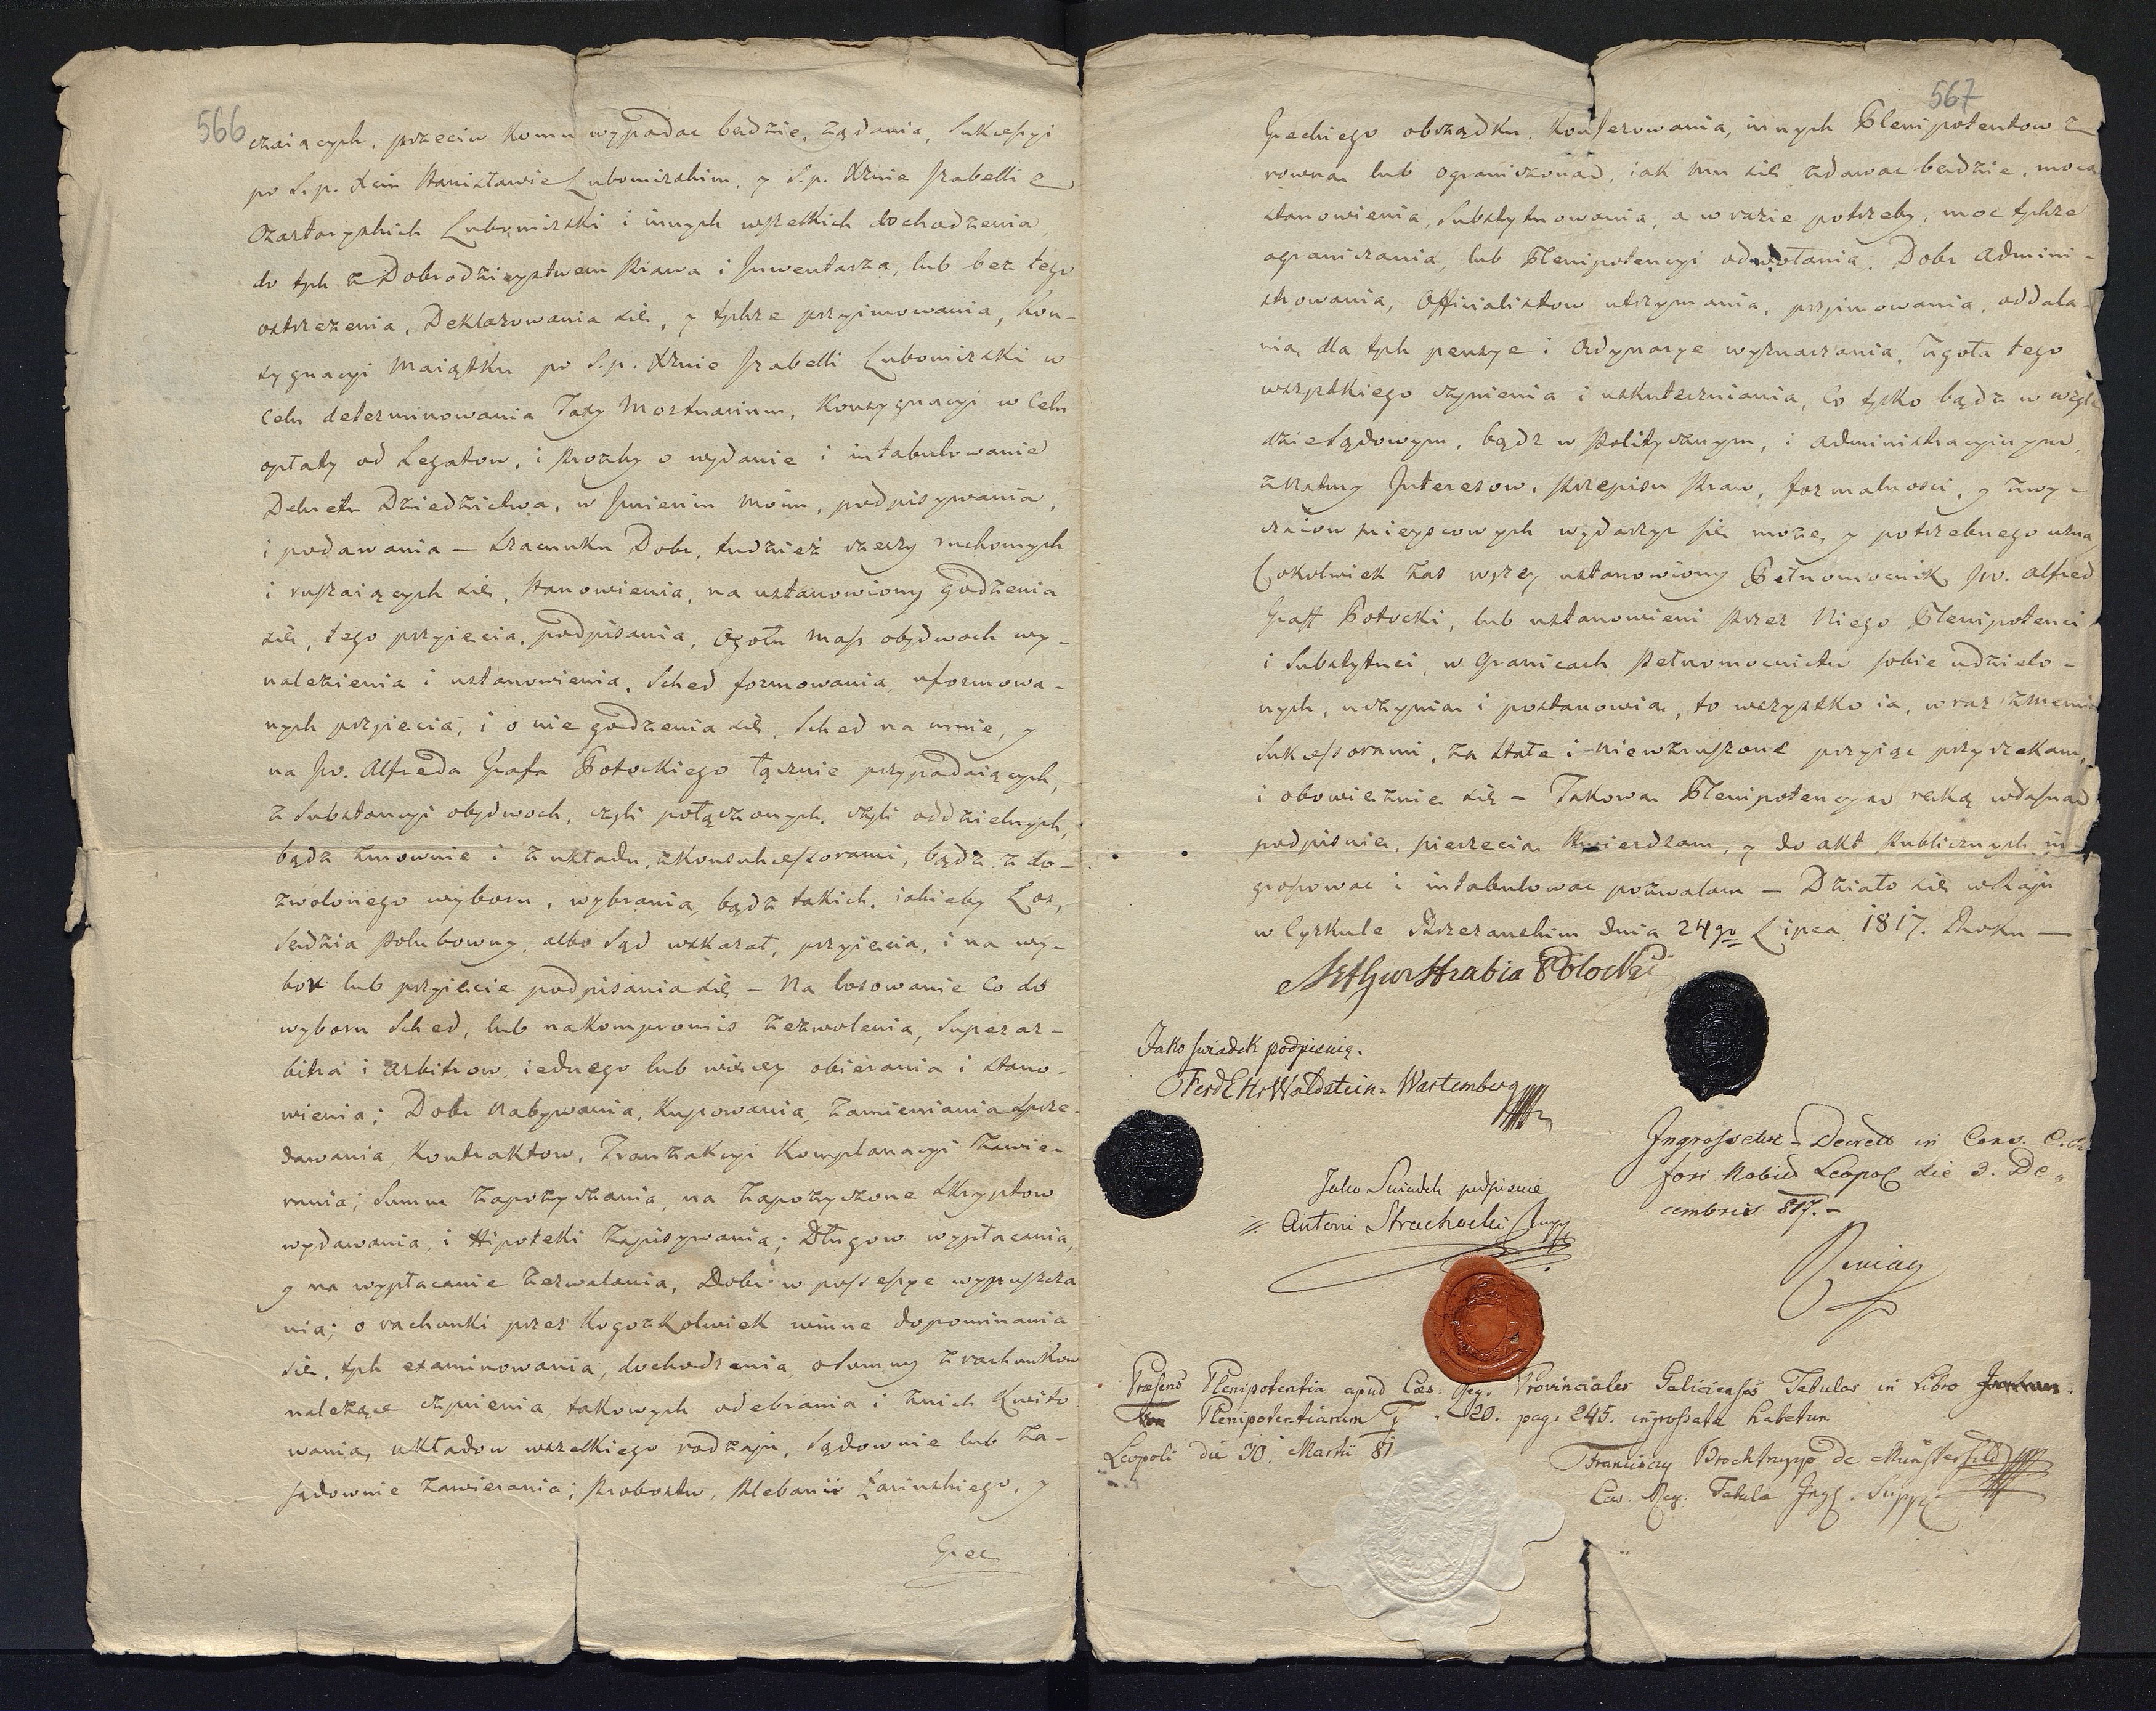 566
czaiących, przeciw komu wypadac będzie, żądania, Sukcessyi
po S.p. Xciu Stanisławie Lubomirskim, y S.p. Xżnie Izabelli z
Czartoryskich Lubomirski i innych wszelkich dochodzenia,
do tych z Dobrodzieystwem Prawa i Inwentarza, lub bez tego
ostrzeżenia, Deklarowania się, y tychże przyimowania, Kon-
sygnacyi Maiątku po S.p. Xżnie Izabelli Lubomirski w
Celu determinowania Taxy Mortuarium, Konsygnacyi w Celu
opłaty od Legatow, i Prozby o wydanie i intabulowanie
Dekretu Dziedzictwa, w Imieniu Moim, podpisywania,
i podawania — Szacunku Dobr, tudzież rzeczy ruchomych
i ruszaiących się, Stanowienia, na ustanowiony godzenia
się, tego przyięcia, podpisania, Ogołu Mass obydwoch wy-
nalezienia i ustanowienia, Sched formowania, uformowa-
nych przyięcia, i o nie godzenia się, Sched na mnie, y
na Jw. Alfreda Grafa Potockiego łącznie przypadaiących,
z Substancyi obydwoch, czyli połączonych, czyli oddzielnych,
bądz zmownie i z układu, z Konsukcessorami, bądz z do-
zwolonego wyboru, wybrania, bądz takich, iakieby Los,
Sędzia Polubowny, albo Sąd wskazał, przyięcia, i na wy-
bor lub przyięcie podpisania się — Na losowanie Co do
wyboru Sched, lub na kompromis zezwolenia, Superar-
bitra i Arbitrow, iednego lub więcey obierania i stano-
wienia; Dobr Nabywania, Kupowania, Zamieniania Sprze-
dawania, Kontraktow, Tranzakcyi Komplanacyi Zawie-
rania; Summ Zapożyczania, na Zapożyczone Skryptow
wydawania, i Hipoteki Zapisywania; Długow wypłacania,
y na wypłacanie Zezwalania, Dobr w possessye wypuszcza
nia; o rachunki przez Kogożkolwiek winne dopominania
się, tych examinowania, dochodzenia, o Summy z rachunkow
należące czynienia, takowych odebrania i z nich Kwito
wania, układow wszelkiego rodzaju, Sądownie lub Za-
sądownie Zawierania; Probostw, Plebanii Łacinskiego, y
Grec
567
Greckiego obrządku, Konferowania, innych Plenipotentow z
rowną lub ograniczoną, iak mu się zdawac będzie, mocą
stanowienia, Substytuowania, a w razie potrzeby, moc tychże
ograniczania, lub Plenipotencyi odwołania, Dobr Admini-
strowania, Officialistow utrzymania, przyimowania, oddala-
nia, dla tych pensye i Ordynarye wyznaczania, Zgoła tego
wszystkiego czynienia i uskuteczniania, Co tylko bądz w wzglę
dzie Sądowym, bądz w Politycznym, i Administracyinym,
z Natury Interesow, Przepisu Praw, formalnosci, y zwy-
czaiow mieyscowych wydarzyc się może, y potrzebnego uzna,
Cokolwiek zas wyżey ustanowiony Pełnomocnik Jw. Alfred
Graff Potocki, lub ustanowieni Przez Niego Plenipotenci
i Substytuci, w Granicach Pełnomocnictw sobie udzielo-
nych, uczynią i postanowią, to wszystko ia, wraz z memi
Sukcessorami, za stałe i Niewzruszone przyiąc przyrzekam,
i obowięznie się — Takową Plenipotencyą ręką własną
podpisuię, pieczęcią stwierdzam, y do akt Publicznych in-
grossowac i intabulowac pozwalam — Działo się w Raju
w Cyrkule Brzezanskim dnia 24go Lipca 1817. Roku —
Arthur Hrabia Potocki
Jako swiadek podpisuię.
Ferd E Hr Waldstein-Wartemberg
Jako Swiadek podpisuie
Antoni Strachocki
Ingrossetur Decreto in Cons. C. R.
fori Nobil Leopol die 3. De„
cembris 817.-
Præsens Plenipotentia apud Cæs. Reg. Provinciales Galicienses Tabulas in Libro
Plenipotentiarum T. 20. pag. 245. ingrossata habetur
Leopoli die 30. Martii 81
Franciscus Brochtrupp de Münsterfeld
Cæs. Reg. Tabulæ Ingr. Supp